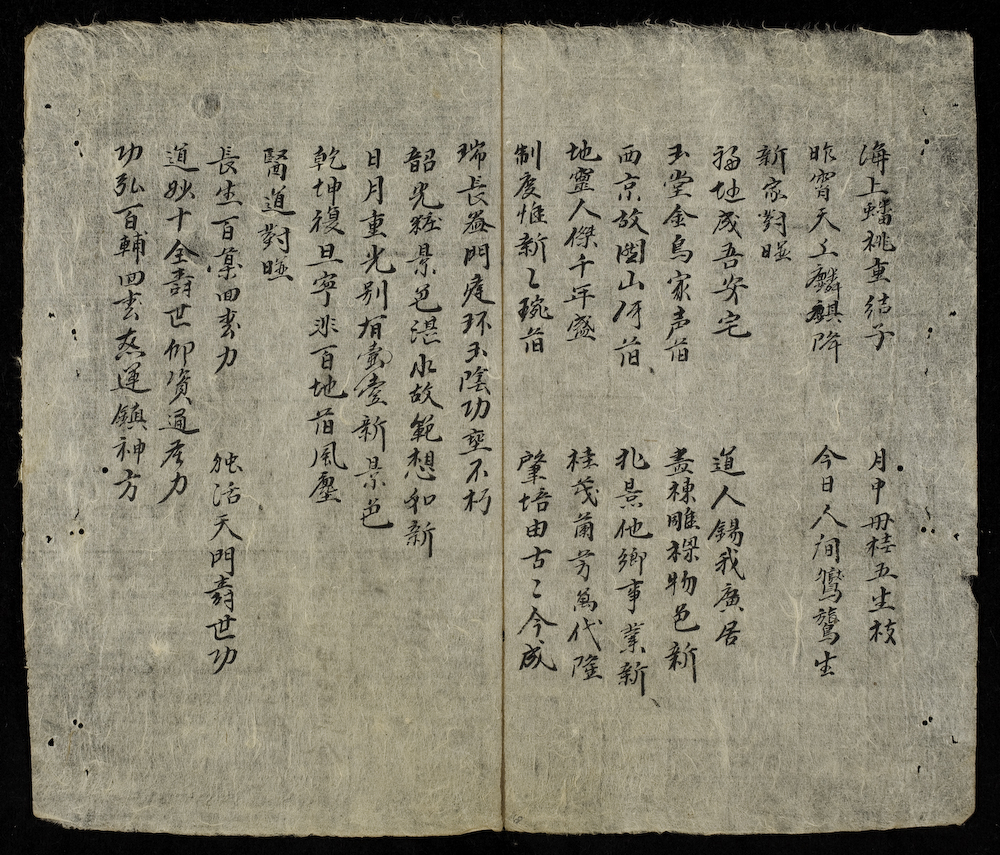 海上蟠桃重結子 月中丹桂五生枝
昨宵天上麟麒降 今日人間鸞鷟生
新家對聯
福地成吾安宅 道人錫我廣居
玉堂金馬家声旧 畫棟雕樑物色新
西京故国山河旧 北景他鄉事業新
地靈人傑千年盛 桂茂蘭芳萬代隆
制度惟新〻琬旧 肇培由古〻今成
瑞長益門庭环玉陰功垂不朽
韶光粧景色湛水故範想和新
日月重光别有壺壹新景色
乾坤復旦寧非百地旧風塵
醫道對聯
長生百藥回春力 独活天門壽世功
道妙十全壽世仰資通孝力
功弘百輔回春蔡運鎮神方